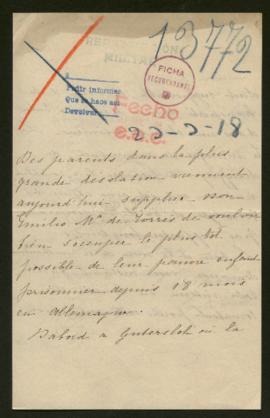 13772
REPRESENTACIÓN
MILITAR
FICHA
Pedir informes
Que se hace así
Devolver
Fecho
22-2-18
Des parents dans la plus
grande désolation viennent
aujourd'hui supplier Don
Emilio Mª de Torres de vouloir
bien s'occuper le plus tôt
possible de leur pauvre enfant
prisonnier depuis 18 mois
en Allemagne.
D'abord a Gutersloh où la